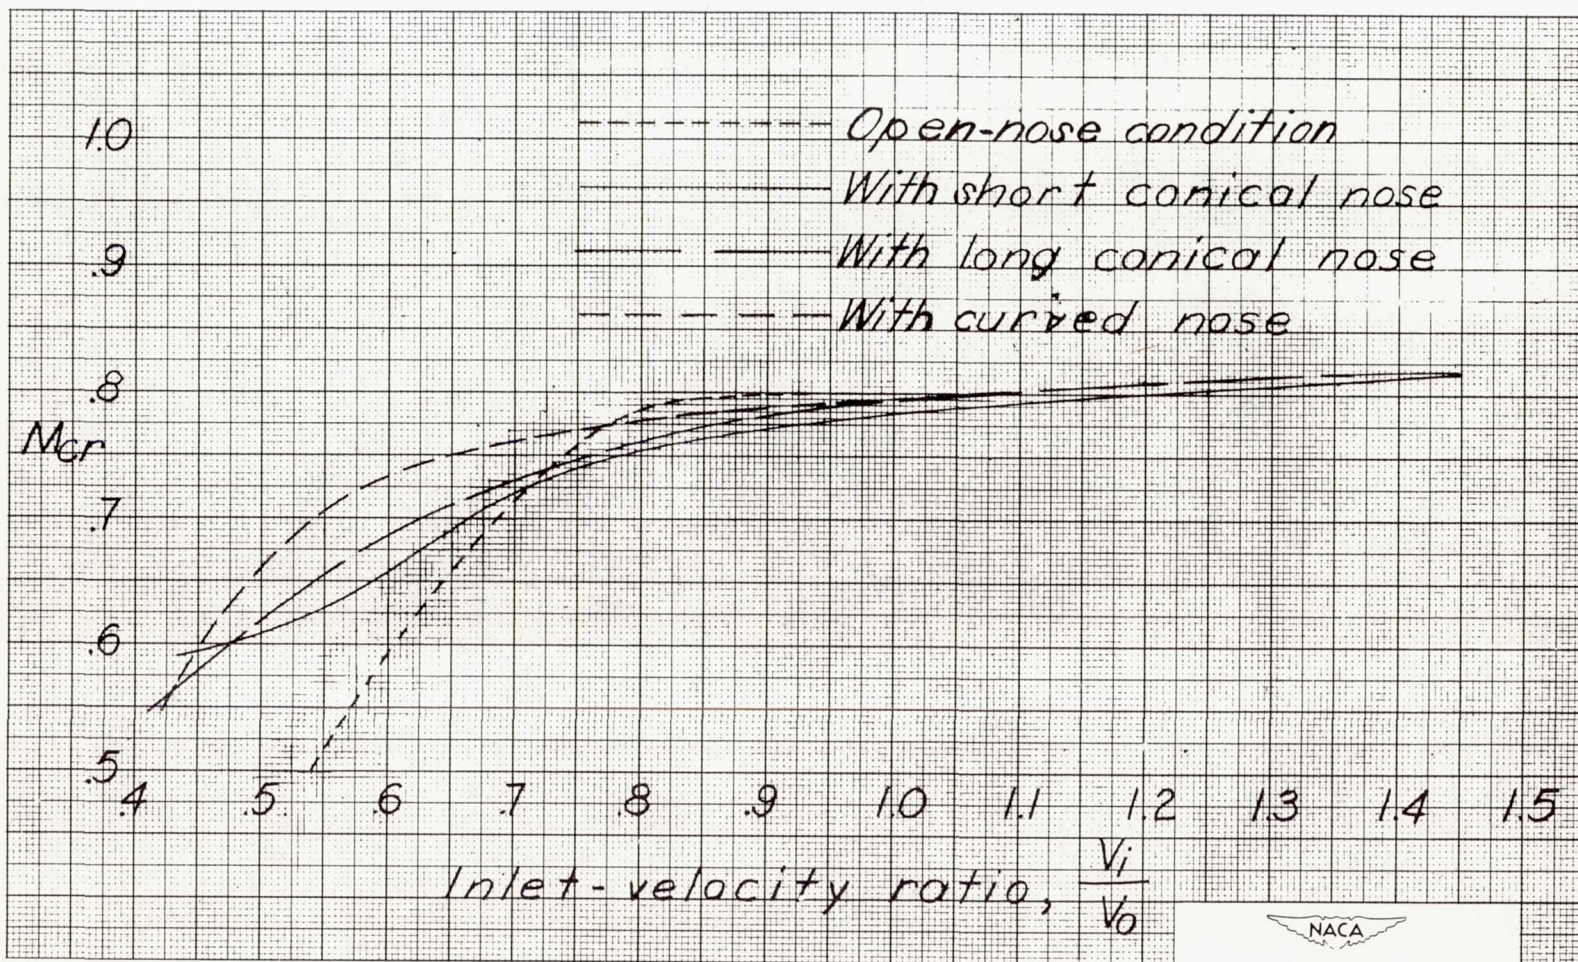 1.0
Open-nose condition
With short conical nose
.9
With long conical nose
With curved nose
.8
Mcr
.7
.6
.5
.4 .5 .6 .7 .8 .9 1.0 1.1 1.2 1.3 1.4 1.5
Inlet-velocity ratio, Vi
Vo
NACA